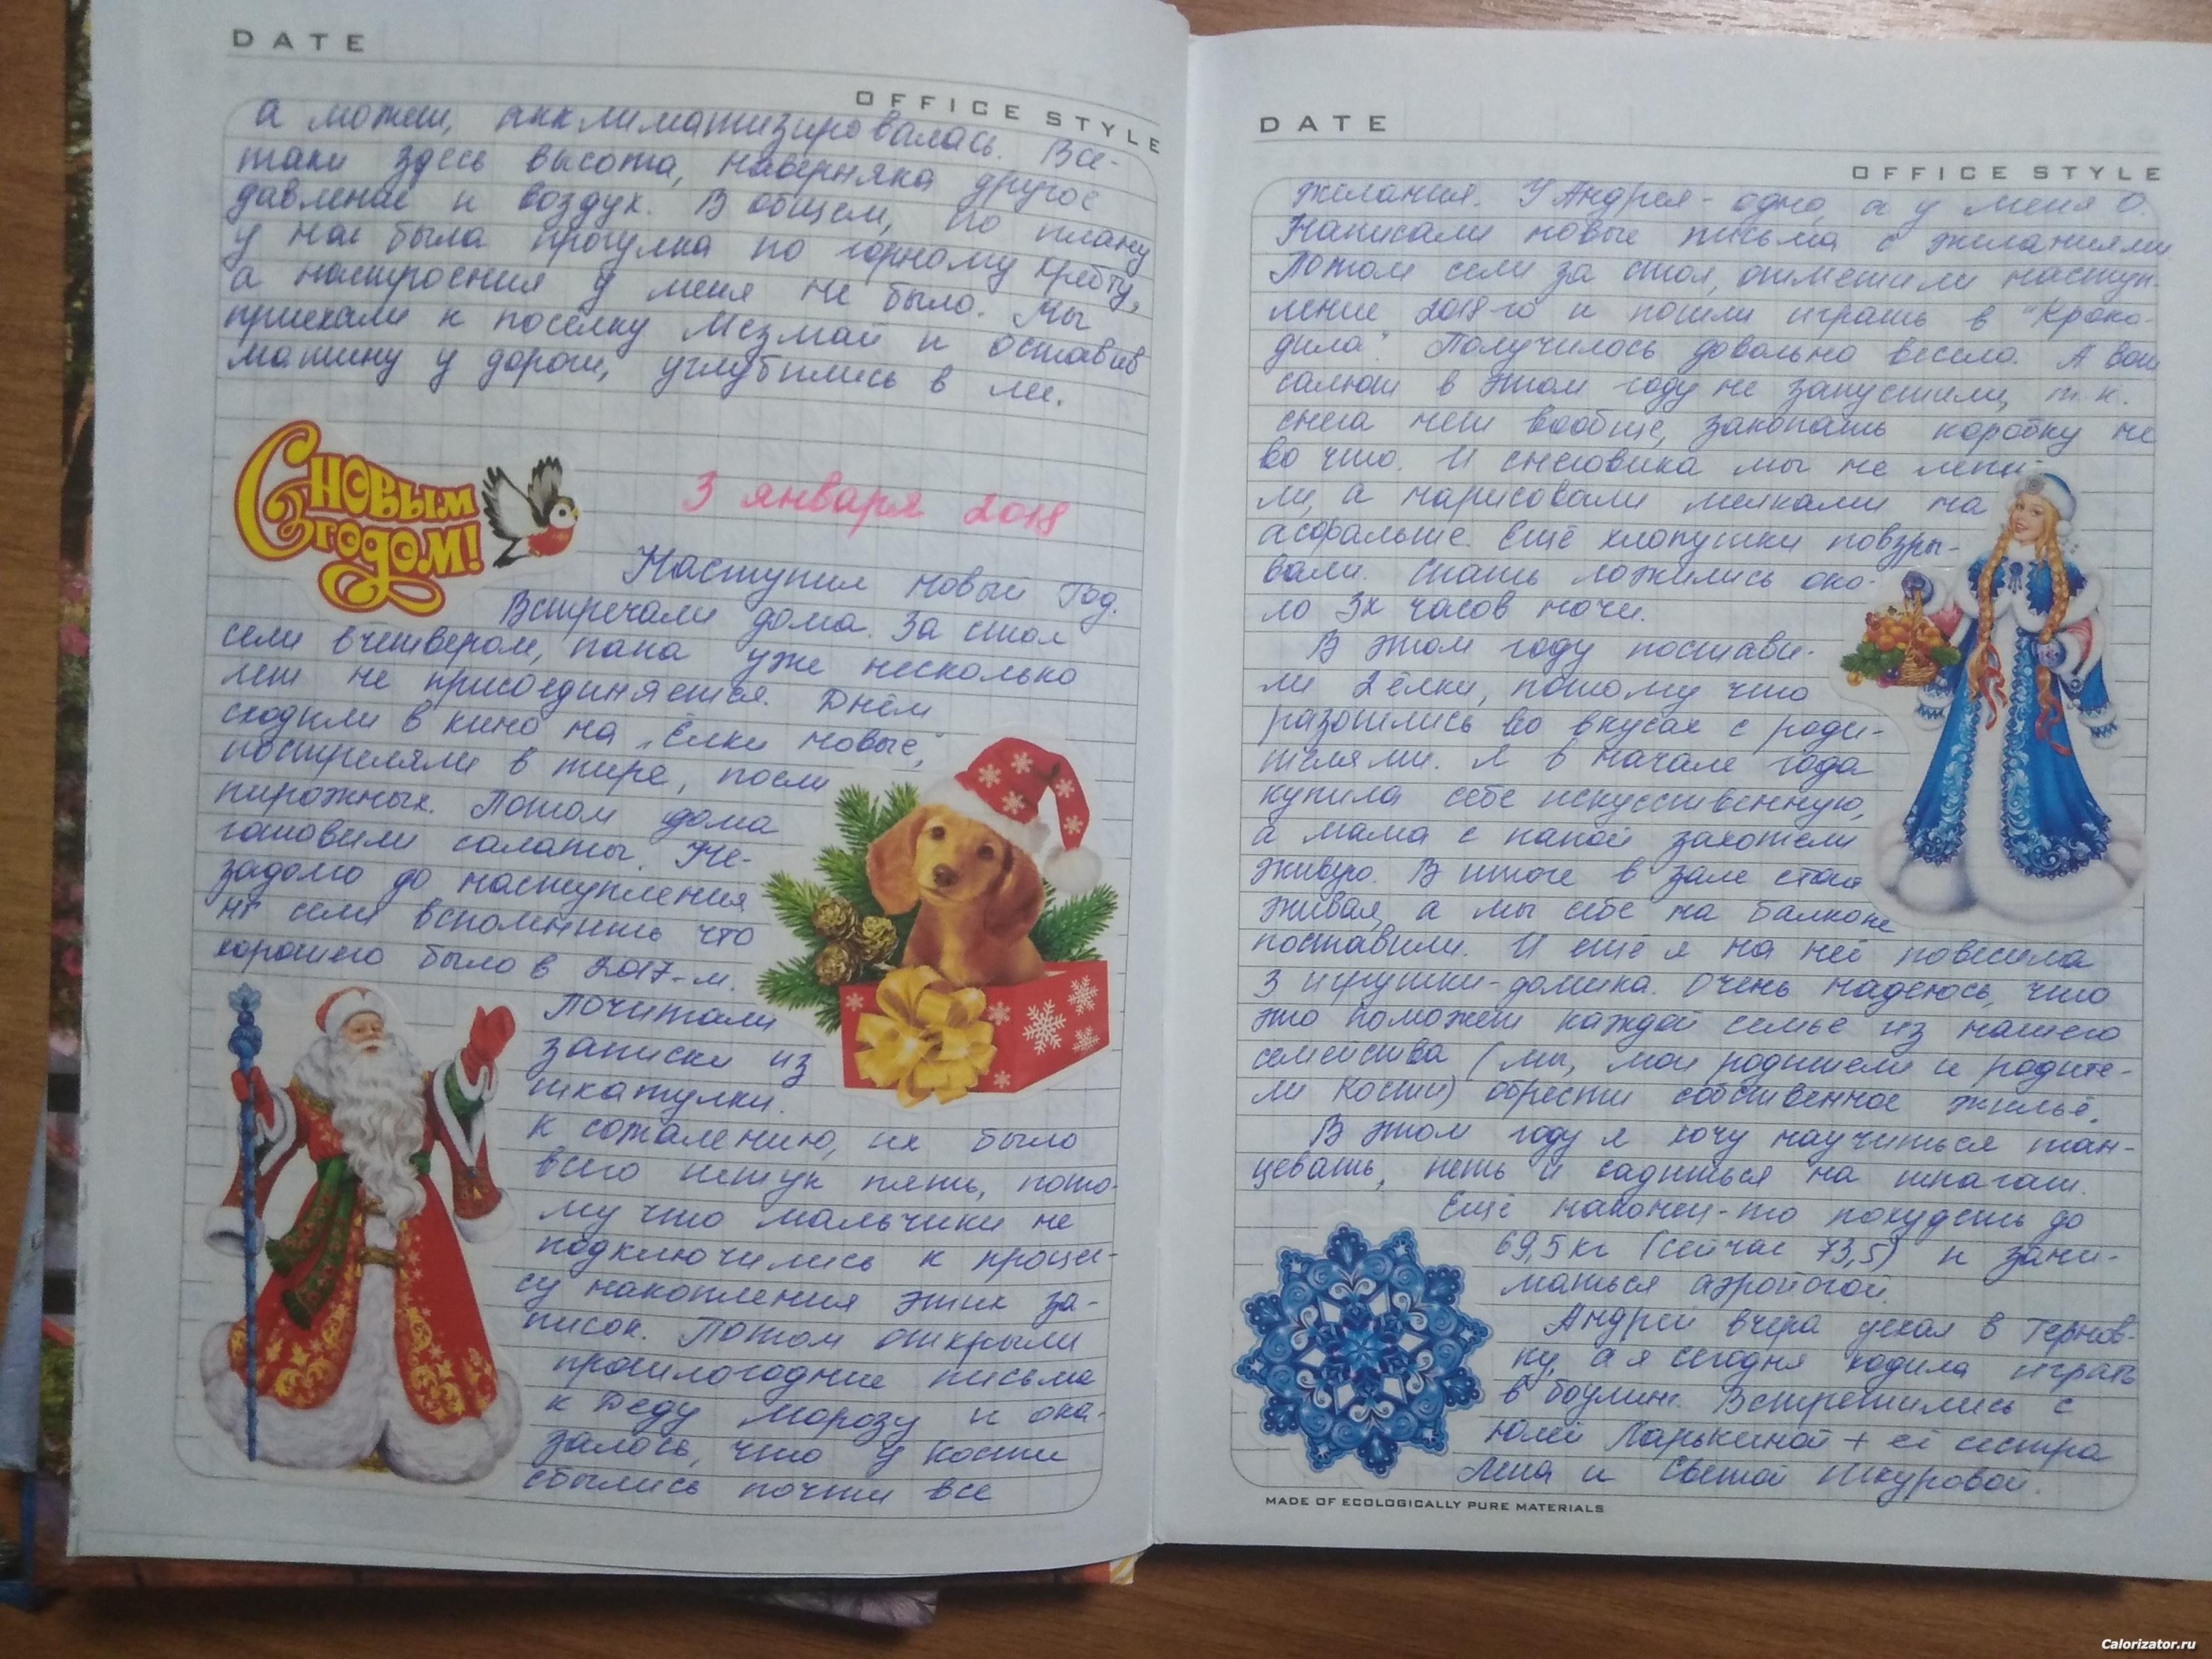 DATE
OFFICE STYLE
а может, акклиматизировалась. Все-
таки здесь высота, наверняка другое
давление и воздух. В общем, по плану
у нас была прогулка по горному хребту,
а настроения у меня не было. Мы
приехали к посёлку Мезмай и оставив
машину у дороги, углубились в лес.
С НОВЫМ
ГОДОМ!
3 января 2018
Наступил Новый Год.
Встречали дома. За стол
сели вчетвером, папа уже несколько
лет не присоединяется. Днём
сходили в кино на „Ёлки новые",
постреляли в тире, поели
пирожных. Потом дома
готовили салаты. Не-
задолго до наступления
НГ сели вспомнить что
хорошего было в 2017-м.
Почитали
записки из
шкатулки.
К сожалению, их было
всего штук пять, пото-
му что мальчики не
подключились к процес-
су накопления этих за-
писок. Потом открыли
прошлогодние письма
к Деду Морозу и ока-
залось, что у Кости
сбылись почти все
DATE
OFFICE STYLE
желания. У Андрея - одно, а у меня 0.
Написали новые письма с желаниями.
Потом сели за стол, отметили наступ-
ление 2018-го и пошли играть в "Кроко-
дила". Получилось довольно весело. А вот
салют в этом году не запустили, т.к.
снега нет вообще, закопать коробку не
во что. И снеговика мы не лепи-
ли, а нарисовали мелками на
асфальте. Ещё хлопушки повзры-
вали. Спать ложились око-
ло 3х часов ночи.
В этом году постави-
ли 2 ёлки, потому что
разошлись во вкусах с роди-
телями. Я в начале года
купила себе искусственную,
а мама с папой захотели
живую. В итоге в зале стоит
живая, а мы себе на балконе
поставили. И ещё я на ней повесила
3 игрушки-домика. Очень надеюсь, что
это поможет каждой семье из нашего
семейства (мы, мои родители и родите-
ли Кости) обрести собственное жильё.
В этом году я хочу научиться тан-
цевать, петь и садиться на шпагат.
Ещё наконец-то похудеть до
69,5 кг (сейчас 73,5) и зани-
маться аэройогой.
Андрей вчера уехал в Тернов-
ку, а я сегодня ходила играть
в боулинг. Встретились с
Юлей Ларькиной + её сестра
Лена и Светой Шкуровой.
MADE OF ECOLOGICALLY PURE MATERIALS
Calorizator.ru